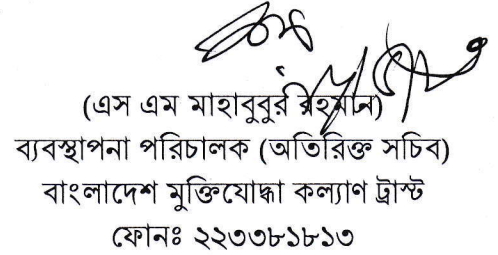 (এস এম মাহাবুবুর রহমান)
ব্যবস্থাপনা পরিচালক (অতিরিক্ত সচিব)
বাংলাদেশ মুক্তিযোদ্ধা কল্যাণ ট্রাস্ট
ফোনঃ ২২৩৩৮১৮১৩